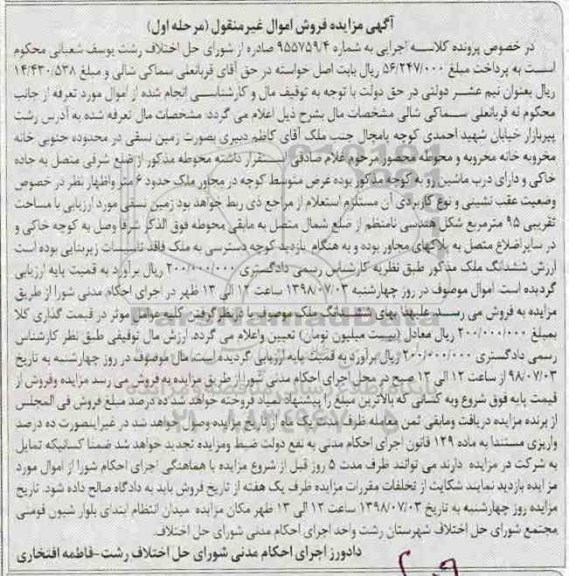 آگهی مزایده فروش اموال غیرمنقول (مرحله اول)
در خصوص پرونده کلاسه اجرایی به شماره ۹۵۵۷۵۹/۴ صادره از شورای حل اختلاف رشت یوسف شعبانی محکوم
است به پرداخت مبلغ ۵۶/۲۴۷/۰۰۰ ریال بابت اصل خواسته در حق آقای قربانعلی سماکی شالی و مبلغ ۱۴/۴۳۰/۵۳۸
ریال بعنوان نیم عشر دولتی در حق دولت با توجه به توقیف مال و کارشناسی انجام شده از اموال مورد تعرفه از جانب
محکوم له قربانعلی سماکی شالی مشخصات مال بشرح ذیل اعلام می گردد: مشخصات مال تعرفه شده به آدرس رشت
پیربازار خیابان شهید احمدی کوچه بامجال جنب ملک آقای کاظم دبیری بصورت زمین نسقی در محدوده جنوبی خانه
مخروبه خانه مخروبه و محوطه محصور مرحوم غلام صادقی استقرار داشته محوطه مذکور از ضلع شرقی متصل به جاده
خاکی و دارای درب ماشین رو به کوچه مذکور بوده عرض متوسط کوچه در مجاور ملک حدود ۶ متر واظهار نظر در خصوص
وضعیت عقب نشینی و نوع کاربردی آن مستلزم استعلام از مراجع ذی ربط خواهد بود زمین نسقی مورد ارزیابی با مساحت
تقریبی ۹۵ مترمربع شکل هندسی نامنظم از ضلع شمال متصل به مابقی محوطه فوق الذکر شرقا وصل به کوچه خاکی و
در سایر اضلاع متصل به پلاکهای مجاور بوده و به هنگام بازدید کوچه دسترسی به ملک فاقد تاسیسات زیربنایی بوده است
ارزش ششدانگ ملک مذکور طبق نظریه کارشناس رسمی دادگستری ۲۰۰/۰۰۰/۰۰۰ ریال برآورد به قمیت پایه ارزیابی
گردیده است. اموال موصوف در روز چهارشنبه ۱۳۹۸/۰۷/۰۳ ساعت ۱۲ الی ۱۳ ظهر در اجرای احکام مدنی شورا از طریق
مزایده به فروش می رسد علیهذا بهای ششدانگ ملک موصوف با در نظر گرفتن کلیه عوامل موثر در قیمت گذاری کلا
بمبلغ ۲۰۰/۰۰۰/۰۰۰ ریال معادل (بیست میلیون تومان) تعیین واعلام می گردد. ارزش مال توقیفی طبق نظر کارشناس
رسمی دادگستری ۲۰۰/۰۰۰/۰۰۰ ریال برآورد به قمیت پایه ارزیابی گردیده است. مال موصوف در روز چهارشنبه به تاریخ
۹۸/۰۷/۰۳ از ساعت ۱۲ الی ۱۳ صبح در محل اجرای احکام مدنی شورا از طریق مزایده به فروش می رسد مزایده وفروش از
قیمت پایه فوق شروع وبه کسانی که بالاترین مبلغ را پیشنهاد نمایند فروخته خواهد شد ده درصد مبلغ فروش فی المجلس
از برنده مزایده دریافت ومابقی ثمن معامله ظرف مدت یک ماه از تاریخ مزایده وصول خواهد شد در غیراینصورت ده درصد
واریزی مستندا به ماده ۱۲۹ قانون اجرای احکام مدنی به نفع دولت ضبط ومزایده تجدید خواهد شد ضمنا کسانیکه تمایل
به شرکت در مزایده دارند می توانند ظرف مدت ۵ روز قبل از شروع مزایده با هماهنگی اجرای احکام شورا از اموال مورد
مزایده بازدید نمایند شکایت از تخلفات مقررات مزایده ظرف یک هفته از تاریخ فروش باید به دادگاه صالح داده شود. تاریخ
مزایده روز چهارشنبه به تاریخ ۱۳۹۸/۰۷/۰۳ ساعت ۱۲ الی ۱۳ ظهر مکان مزایده میدان انتظام ابتدای بلوار شیون فومنی
مجتمع شورای حل اختلاف شهرستان رشت واحد اجرای احکام مدنی شورای حل اختلاف.
دادورز اجرای احکام مدنی شورای حل اختلاف رشت-فاطمه افتخاری